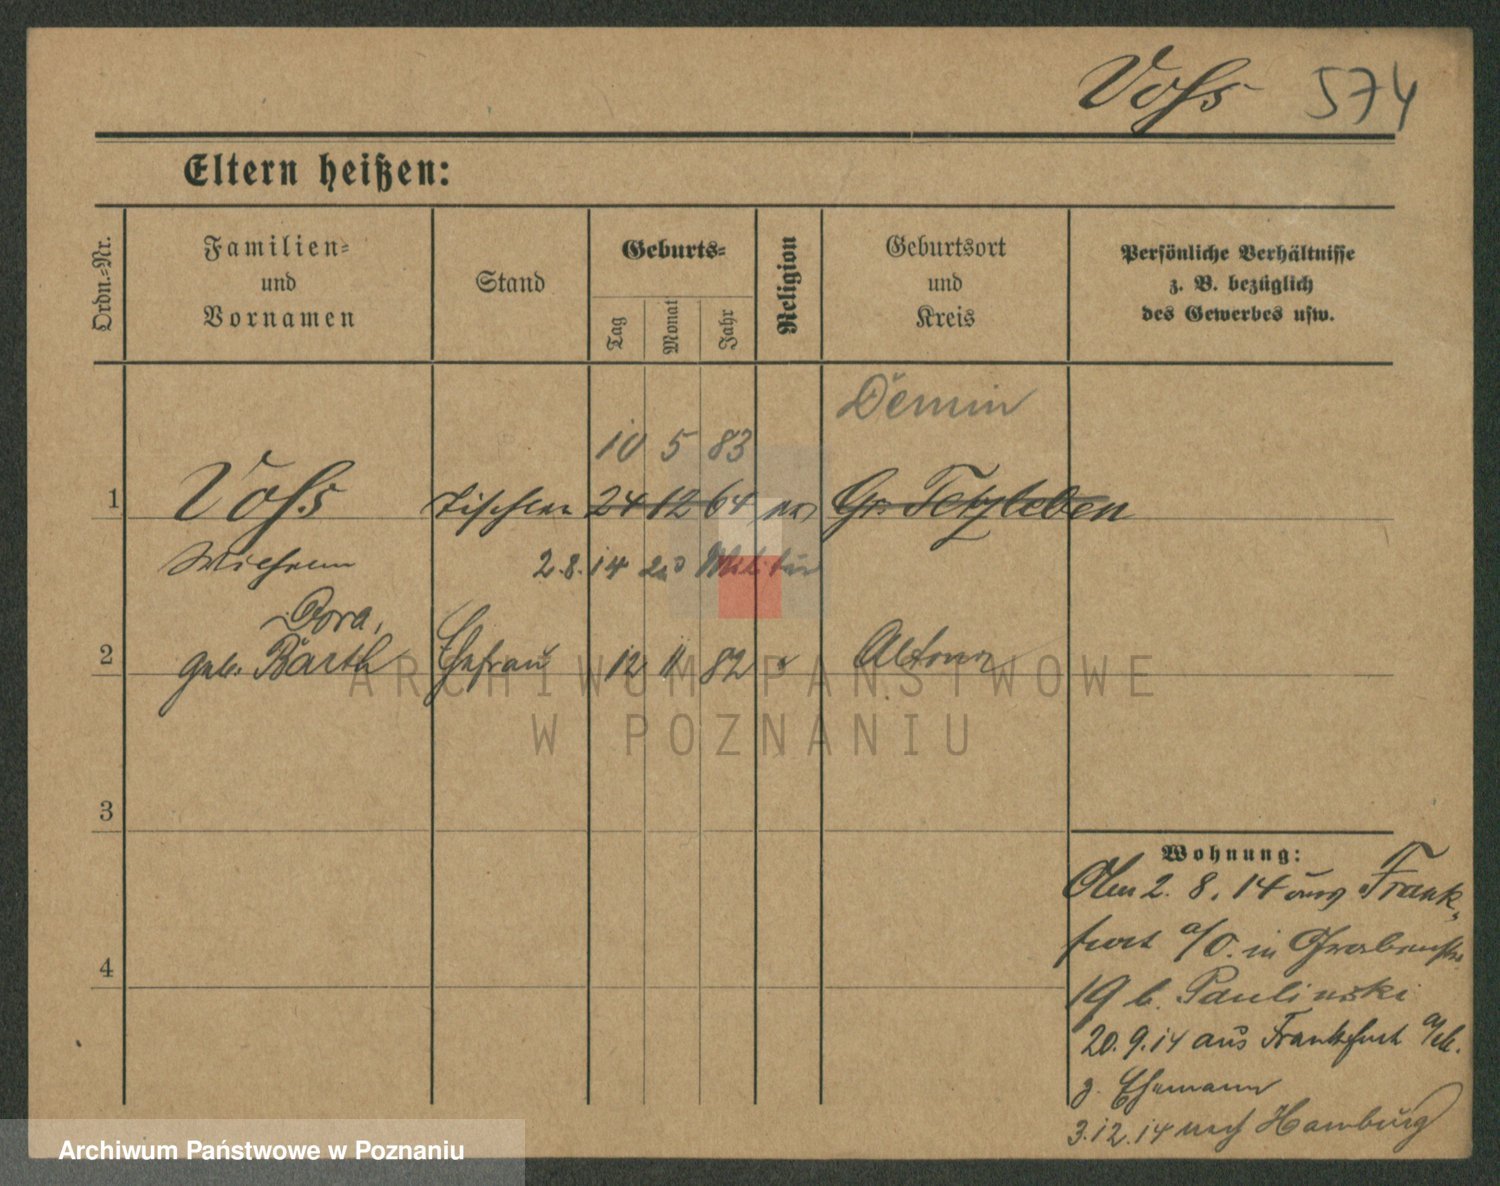 Vohs 574
Eltern heißen:
Ordn.-Nr.
Familien-
und
Vornamen
Stand
Geburts-
Tag
Monat
Jahr
Religion
Geburtsort
und
Kreis
Persönliche Verhältnisse
z. B. bezüglich
des Gewerbes usw.
Demin
10 5 83
1 Vohs Tischler 24 12 64 Gr. Tetzleben
Wilhelm 2.8.14 zu Militär
Dora,
2 geb. Barth Ehefrau 12 11 82 " Altona
3
4
Wohnung:
2. 8. 14 aus Frank-
furt a/O. in Grabenstr.
19 b. Paulinski
20.9.14 aus Frankfurt
z. Ehemann
3.12.14 nach Hamburg
ARCHIWUM PAŃSTWOWE
W POZNANIU
Archiwum Państwowe w Poznaniu